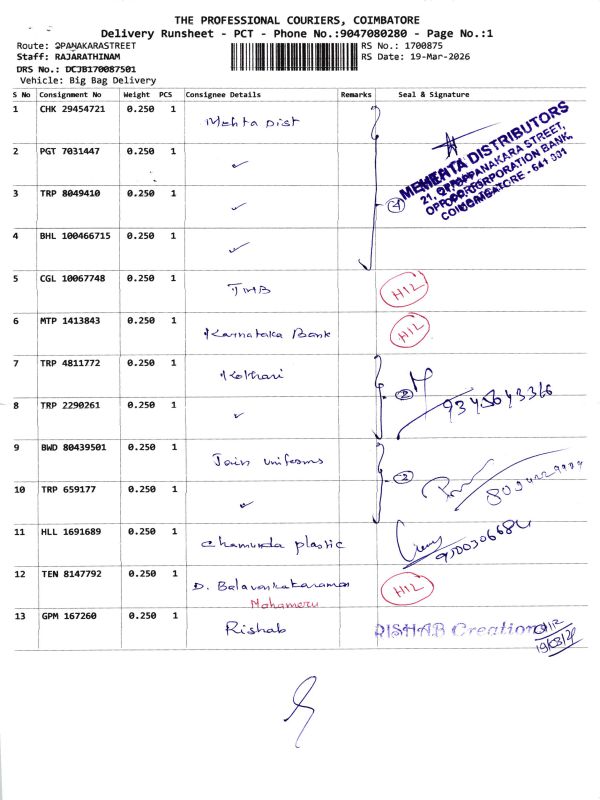 THE PROFESSIONAL COURIERS, COIMBATORE
Delivery Runsheet - PCT - Phone No.:9047080280 - Page No.:1
Route: OPANAKARASTREET RS No.: 1700875
Staff: RAJARATHINAM RS Date: 19-Mar-2026
DRS No.: DCJB170087501
Vehicle: Big Bag Delivery
S No Consignment No Weight PCS Consignee Details Remarks Seal & Signature
1 CHK 29454721 0.250 1 Mehta Dist
MEHTA DISTRIBUTORS
21, OPPANAKARA STREET,
OPP. CORPORATION BANK,
COIMBATORE - 641 001
2 PGT 7031447 0.250 1 ✓
3 TRP 8049410 0.250 1 ✓ 4
4 BHL 100466715 0.250 1 ✓
5 CGL 10067748 0.250 1 TMB H12
6 MTP 1413843 0.250 1 Karnataka Bank H12
7 TRP 4811772 0.250 1 Kothari 2
8 TRP 2290261 0.250 1 ✓ 9345643366
9 BWD 80439501 0.250 1 Jain uniforms 2
10 TRP 659177 0.250 1 ✓
11 HLL 1691689 0.250 1 Chamunda plastic
12 TEN 8147792 0.250 1 D. Balavenkataraman H12
Mahameru
13 GPM 167260 0.250 1 Rishab RISHAB Creation